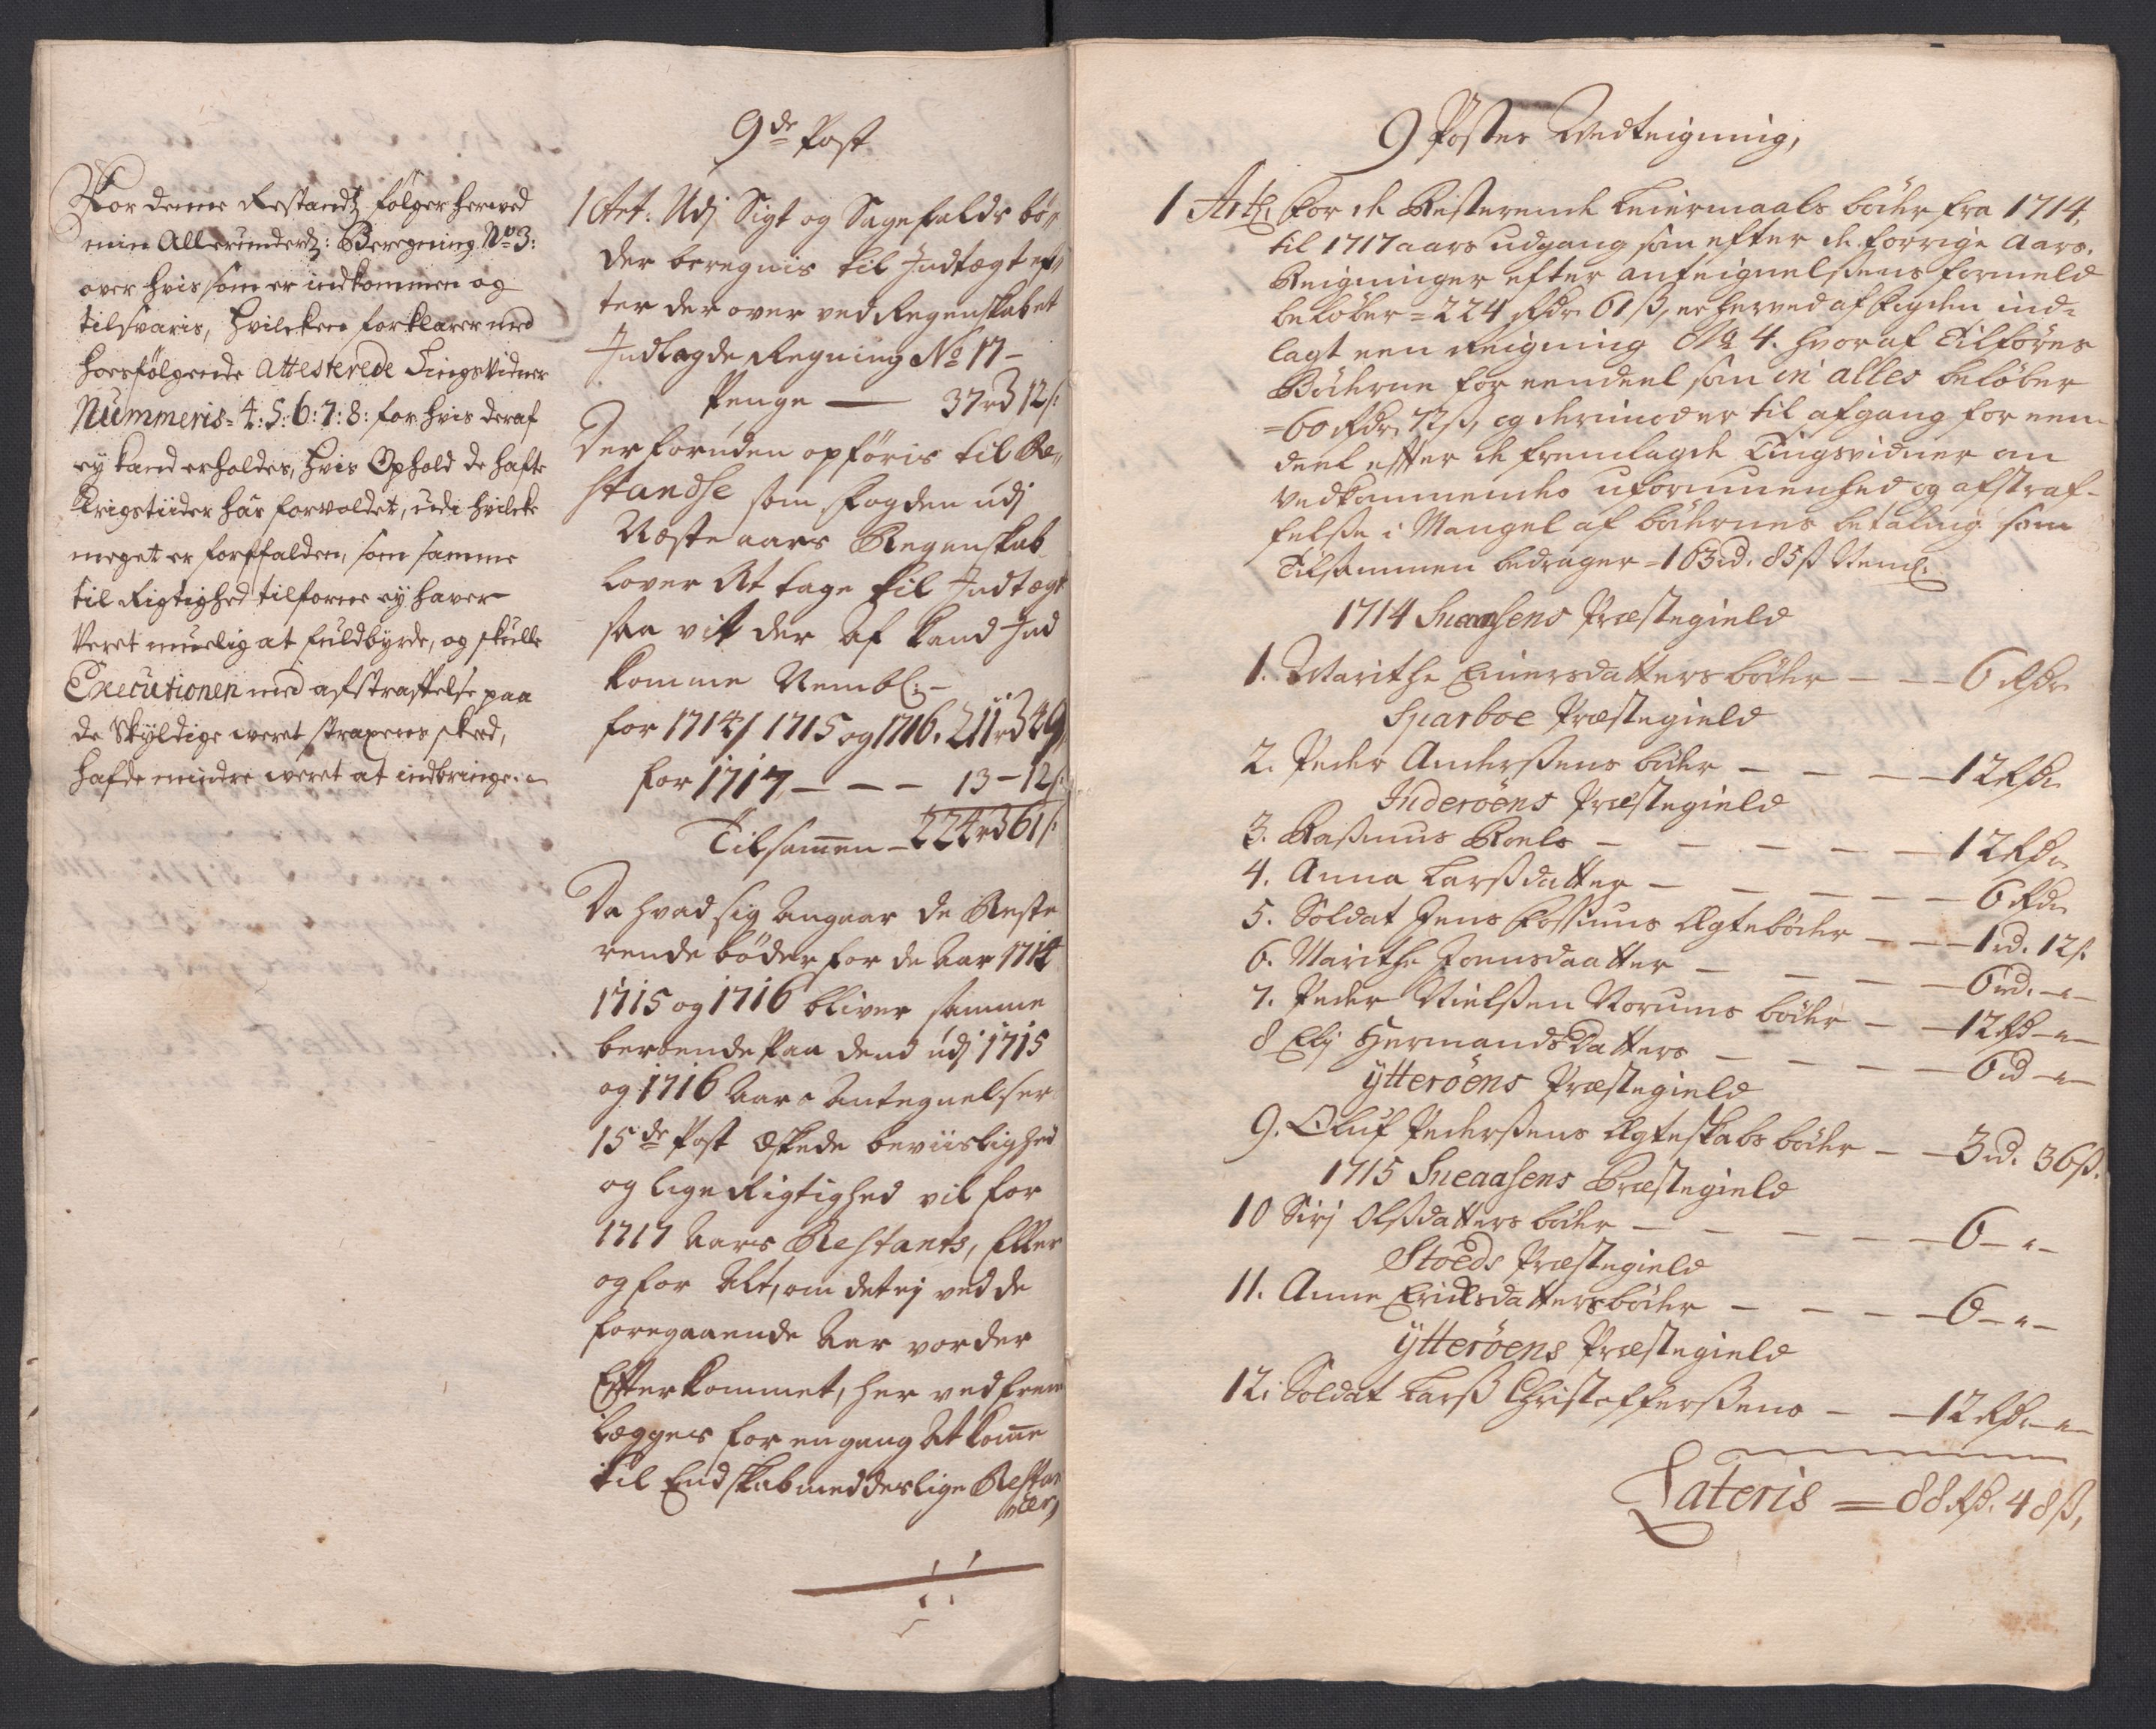 For denne Restandtz følger herved
min Allerunderd: Beregning No 3:
over hvis som er indkommen og
tilsvaris, hvilcken forklarer med
hoesfølgende attesterede Tingsvidner
Nummeris = 4: 5: 6: 7: 8: for hvis deraf
ey kand erholdes, hvis Ophold de hafte
Krigstiider har forvoldet, udi hvilcke
meget er forfalden, som samme
til Rigtighed tilforne ey haver
veret muelig at fuldbyrde, og skulle
Executionen med afstraffelse paa
de Skyldige veret strax skeed,
hafde mindre veret at indbringe.
9de Post
1 Art. Udj Sigt og Sagefalds bø-
der beregnis til Indtægt ef-
ter der over ved Regenskabet
Indlagde Regning No 17 -
Penge — 37 rd 12 s:
Der foruden opføris til Re-
standse som fogden udj
Næste aars Regenskab
lover At tage til Indtægt
saa vit der af kand Ind
komme Nembl: -
for 1714 / 1715 og 1716. 211 rd 49
for 1717 - - - 13 - 12 s:
Tilsamen - 224 rd 61 s:
Da hvad sig Angaar de Reste
rende bøder for de Aar 1714
1715 og 1716 bliver samme
beroende Paa dend udj 1715
og 1716 Aars Antegnelser
15de Post Æskede beviislighed
og lige Rigtighed vil for
1717 Aars Restants, Eller
og for Alt, om det ej ved de
foregaaende Aar vorder
Efterkommet, her ved frem
lægges for engang At kome
til Endskab med deslige Restan
cer,
9 Postes Vedteigning,
1 Art: for de Resterende Leiermaals bøder fra 1714,
til 1717 aars udgang som efter de forrige Aars
Reigninger efter anteignelsens formeld
beløber = 224 Rdr 61 ß, er herved af fogden ind-
lagt een Reigning No 4. hvoraf Tilføres
Bøderne for eendeel som in alles beløber
= 60 Rdr 72 ß, og derimod er til afgang for een
deel efter de fremlagde Tingsvidner om
vedkommendes uformuenhed og afstraf-
felse i Mangel af bødernes betaling som
Tilsammen bedrager - 163 rd. 85 ß Neml:
1714 Sneaasens Præstegield
1. Marithe Einersdatters bøder - - - 6 Rdr
Sparboe Præstegield
2. Peder Anderssens bøder - - - - 12 Rdr
Inderöens Præstegield
3. Rasmus Roels - - - - - 12 Rdr
4. Anna Larsdatter - - - - - 6 Rdr
5. Soldat Jens Fossums Ægtebøder - - - 1 rd. 12 s.
6. Marithe Jonnsdaatter - - - - - 6 rd. - -
7. Peder Nielsen Norums bøder - - 12 Rd - -
8 Elj Hermandsdatters - - - - - 6 rd - -
ÿtteröens Præstegield
9. Oluf Pedersens Ægteskabs bøder - - 3 rd. 36 ß.
1715 Sneaasens Præstegield
10 Sirj Olsdatters bøder - - - - - 6 - -
Stoeds Præstegield
11. Anne Ericksdatters bøder - - - - 6 - -
ÿtteröens Præstegield
12. Soldat Lars Christofferssens - - 12 Rdr - -
Lateris = 88 Rd. 48 ß,